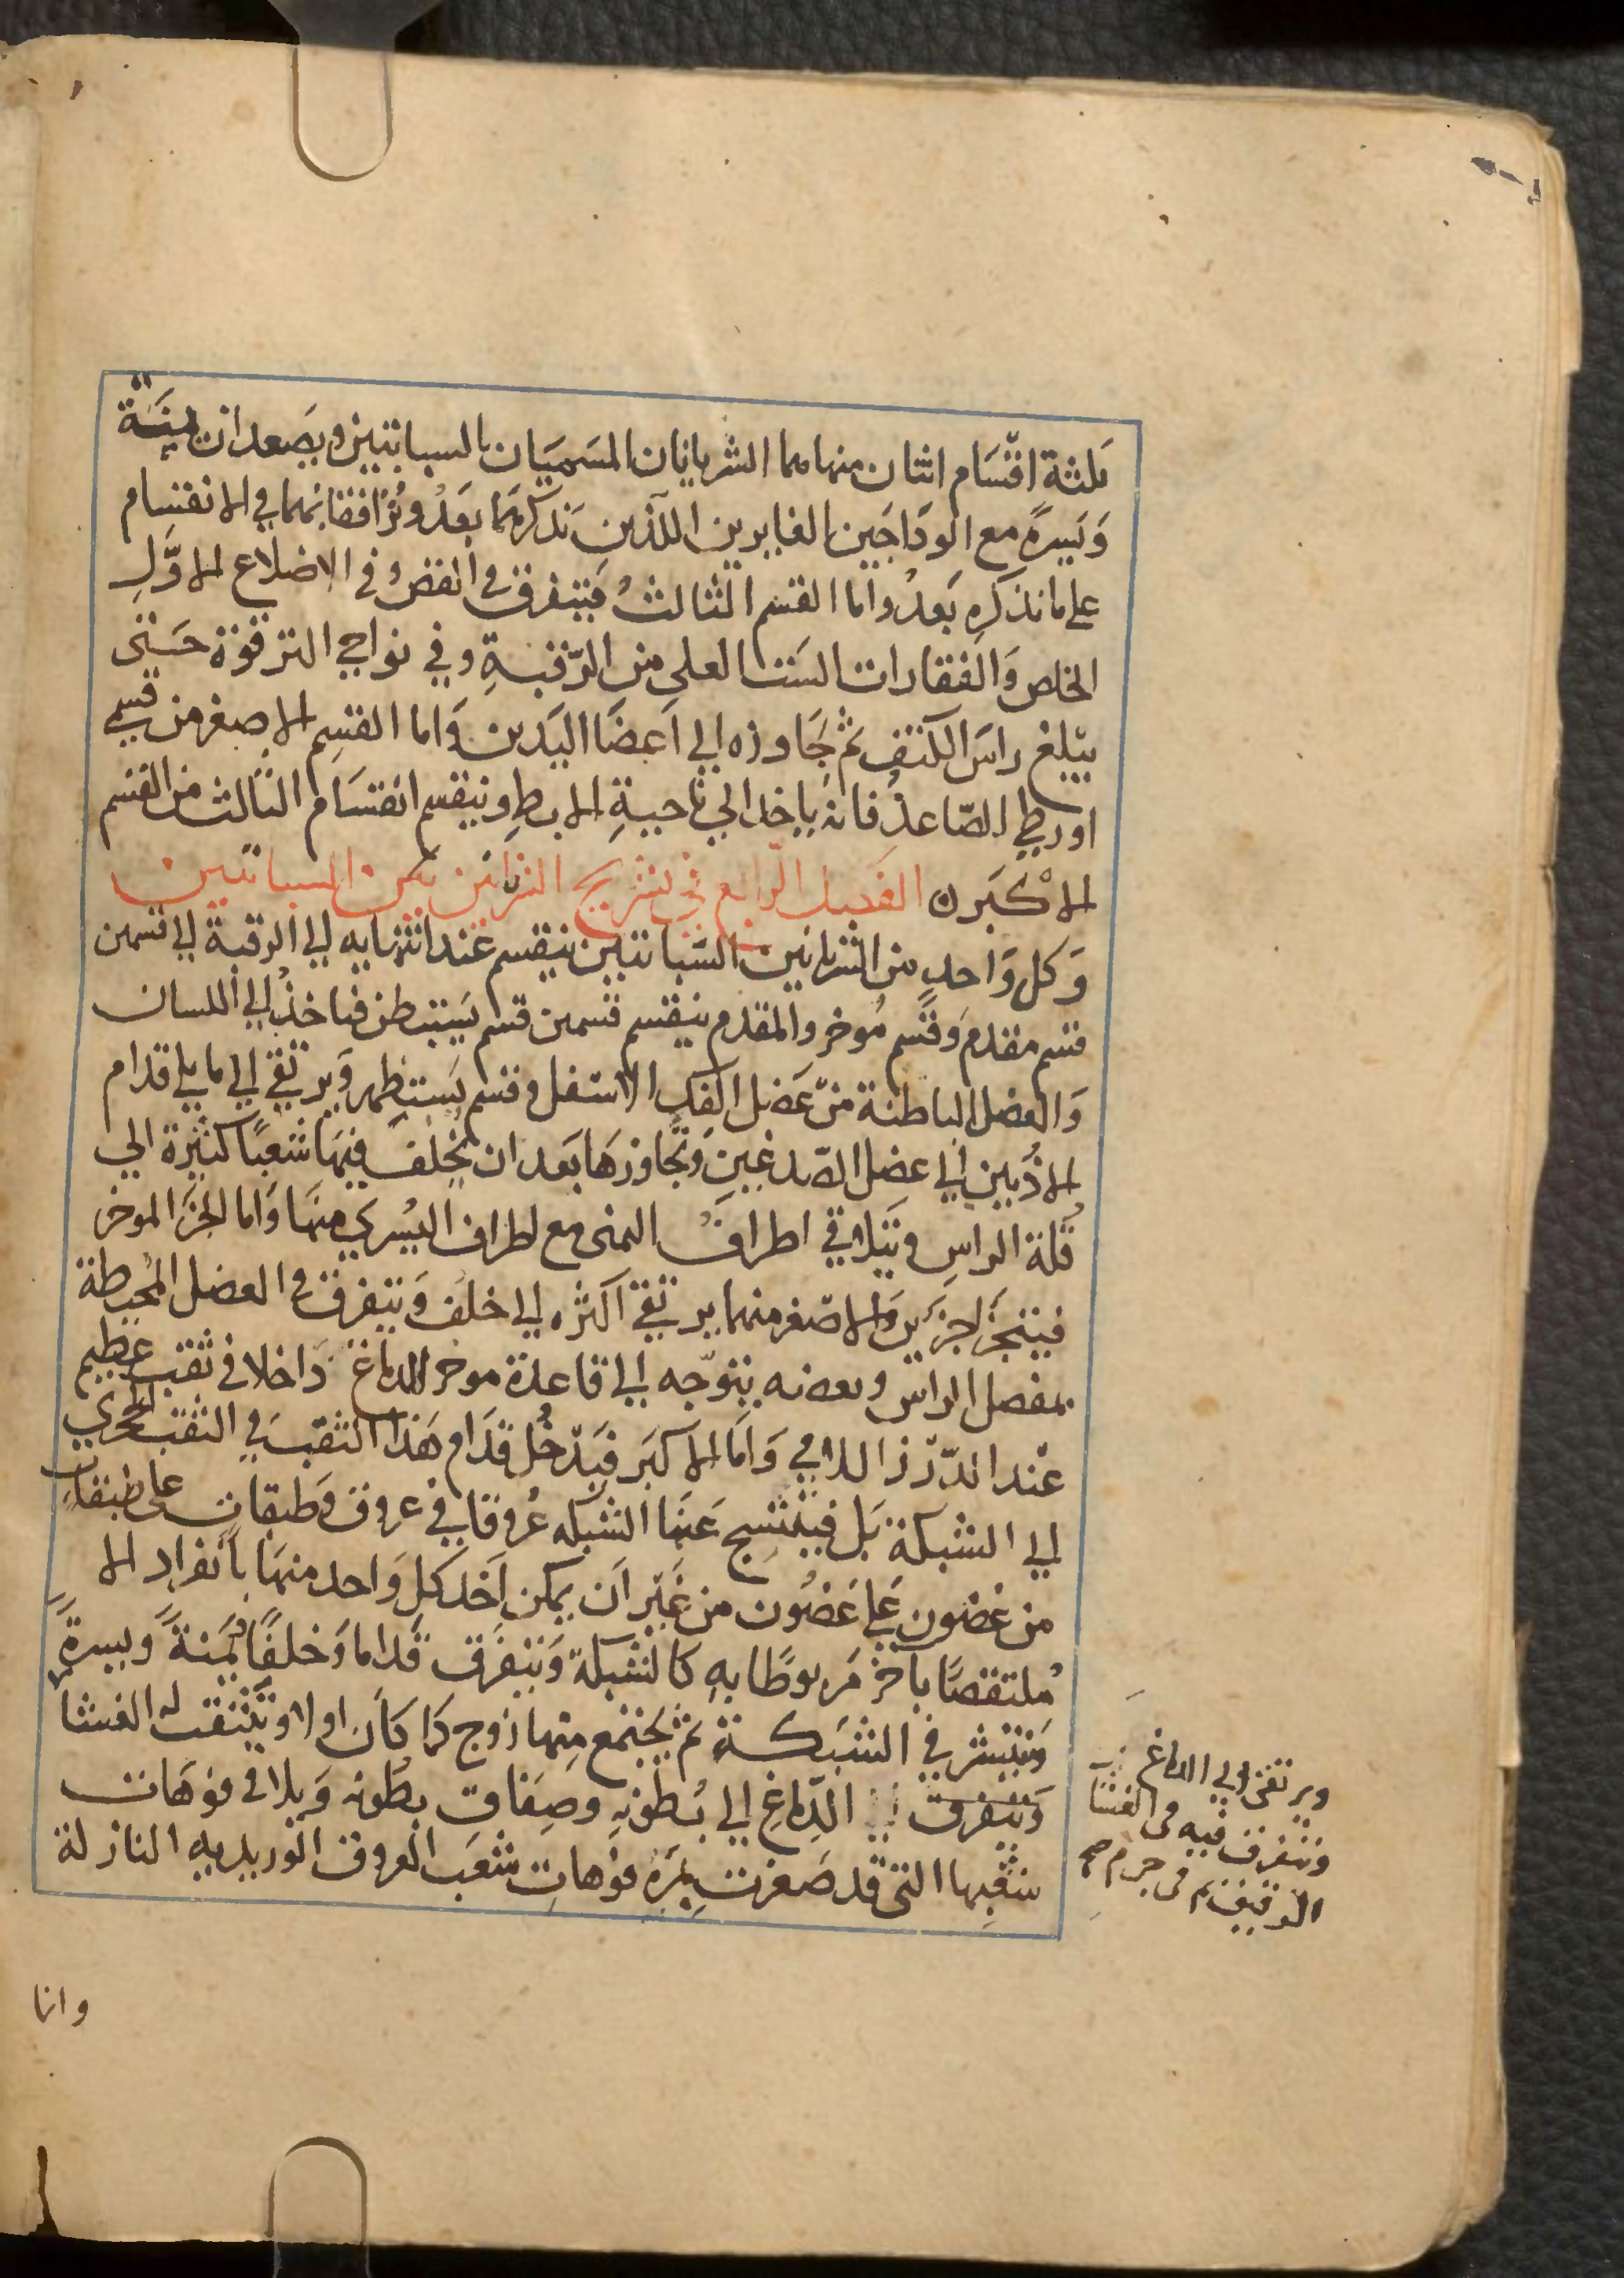 ثلثة اقسام اثنان منها هما الشريانان المسميان بالسباتيين ويصعدان يمنة
ويسرة مع الوداجين الغايرين اللذين نذكرهما بعد ويرافقانهما في الانقسام
على ما نذكره بعد واما القسم الثالث فيتفرق في القص وفي الاضلاع الاول
الخلص والفقارات الست العلى من الرقبة وفي نواحي الترقوة حتى
يبلغ راس الكتف ثم جاوزه الى اعضا اليدين واما القسم الاصغر من قسمي
اورطي الصاعد فانه ياخذ الى ناحية الابط وينقسم انقسام الثالث من القسم
الاكبر ن الفصل الرابع في تشريح الشريانين السباتيين
وكل واحد من الشريانين السباتيين ينقسم عند انتهايه الى الرقبة الى قسمين
قسم مقدم وقسم موخر والمقدم ينقسم قسمين قسم يستبطن فياخذ الى اللسان
والعضل الباطنة من عضل الفك الاسفل وقسم يستظهر ويرتقي الى ما يلي قدام
الاذنين الى عضل الصدغين وتجاوزها بعد ان يخلف فيها شعبا كثيرة الى
قلة الراس ويتلاقي اطراف اليمنى مع اطراف اليسري منها واما الجز الموخر
فيتجز جزين والاصغر منهما يرتقي اكثره الى خلف ويتفرق في العضل المحيطة
بمفصل الراس وبعضه يتوجه الى قاعدة موخر الدماغ داخلا في ثقب عظيم
عند الدرز اللامي واما الاكبر فيدخل قدام هذا الثقب في الثقب الحجري
الى الشبكة بل فينتسج عنها الشبكه عروقا في عروق وطبقات على طبقات
من غضون على غضون من غير ان يمكن اخذ كل واحد منها بانفراد الا
ملتقصا بآخر مربوطا به كالشبكة ويتفرق قداما وخلفا يمنة ويسرة
وينتشر في الشبكة ثم يجتمع منها زوج كما كان اولا ويتثقب له الغشا
ويتفرق الدماغ الى بطونه وصفاق بطونه ويلاقي فوهات
شعبها التي قد صغرت بمرة فوهات شعب العروق الوريديه النازلة
ويرتقى الى الدماغ
ويتفرق فيه فى الغشا
الرقيق ثم فى جرم صح
وانا